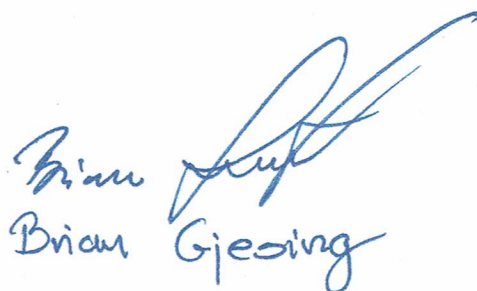 Brian
Brian Gjesing